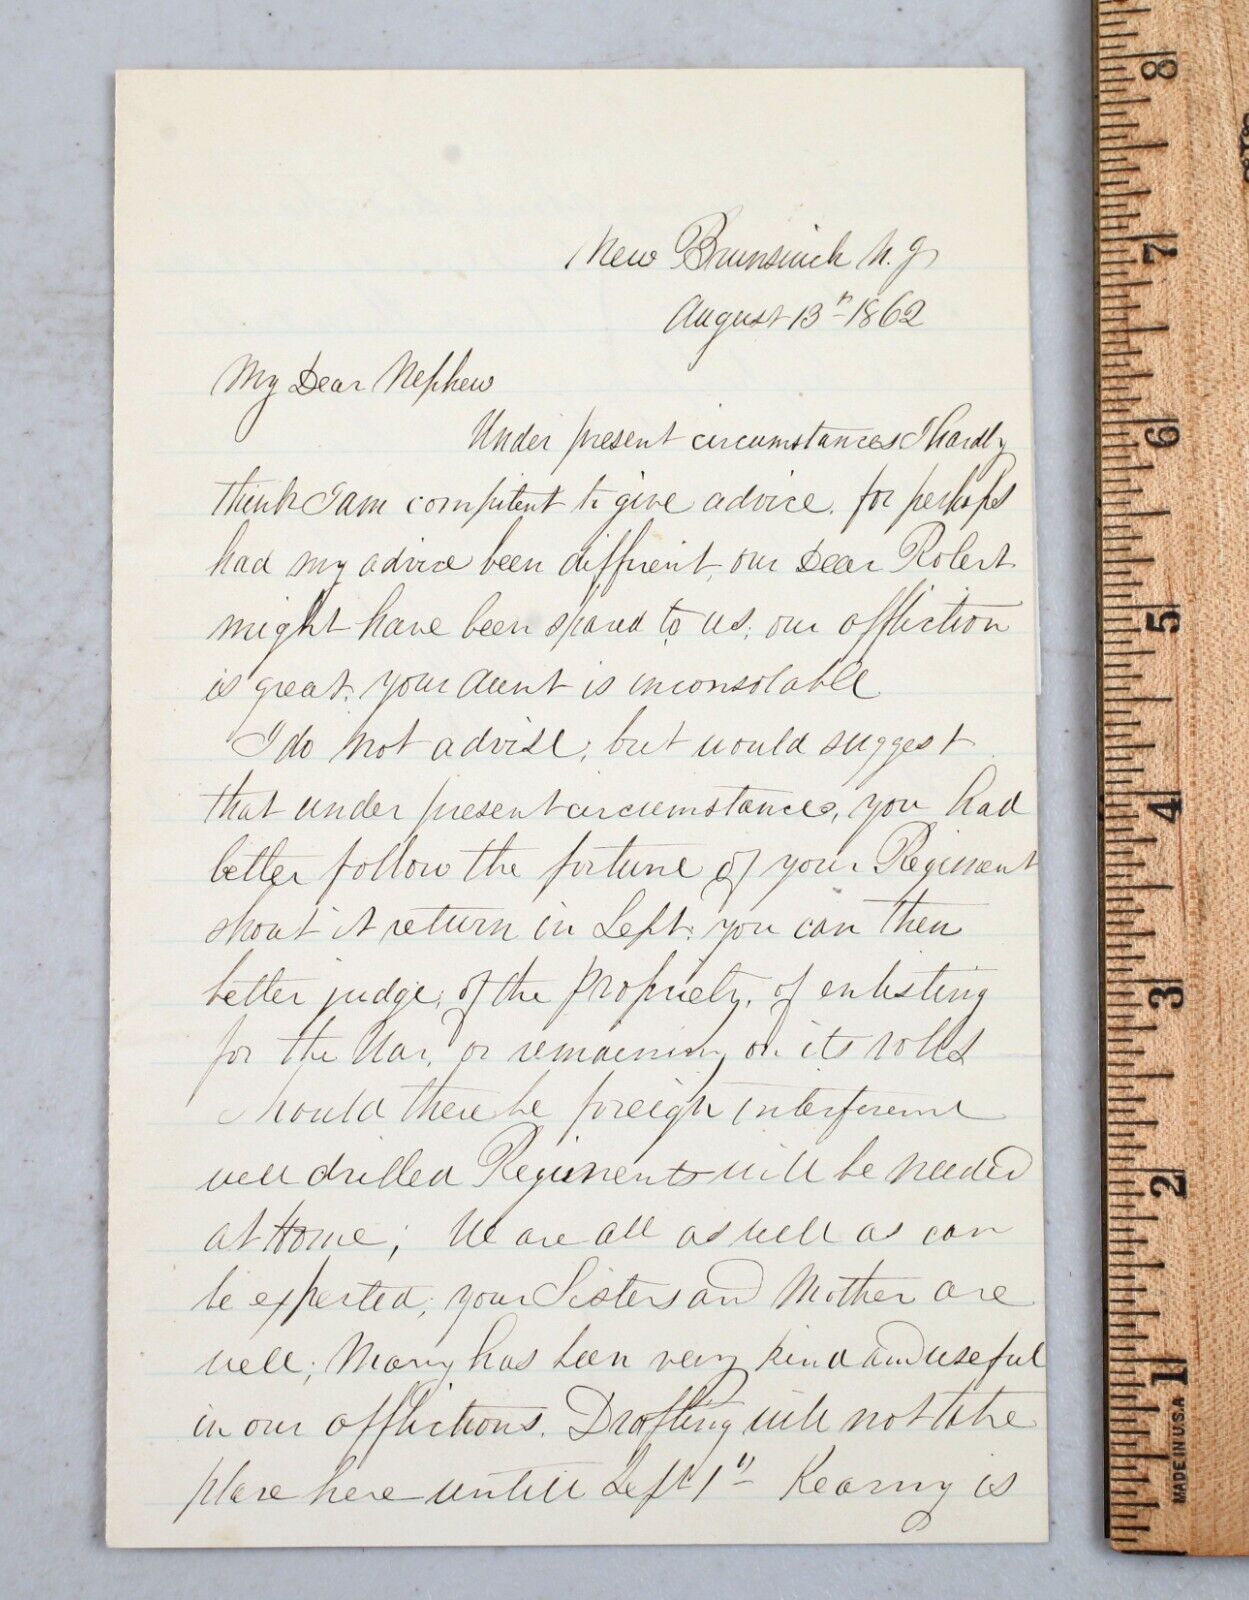 New Brunswick N. J.
August 13th 1862
My Dear Nephew
Under present circumstances I hardly
think I am compitent to give advice. for perhaps
had my advice been diffrient, our Dear Robert
might have been spared to us; our affliction
is great. your Aunt is inconsolable
I do not advise; but would suggest
that under present circumstances, you had
better follow the fortune of your Regiment
it return in Sept. you can then
better judge, of the propriety, of enlisting
for the War, or remaining on its rolls
Should there be foreign interference
well drilled Regiments will be needed
at Home; We are all as well as can
be expected; your Sisters and Mother are
well; Mary has been very kind and useful
in our afflictions. Drafting will not take
place here untill Sept 1st Kearny is
8
7
6
5
4
3
2
1
MADE IN U.S.A